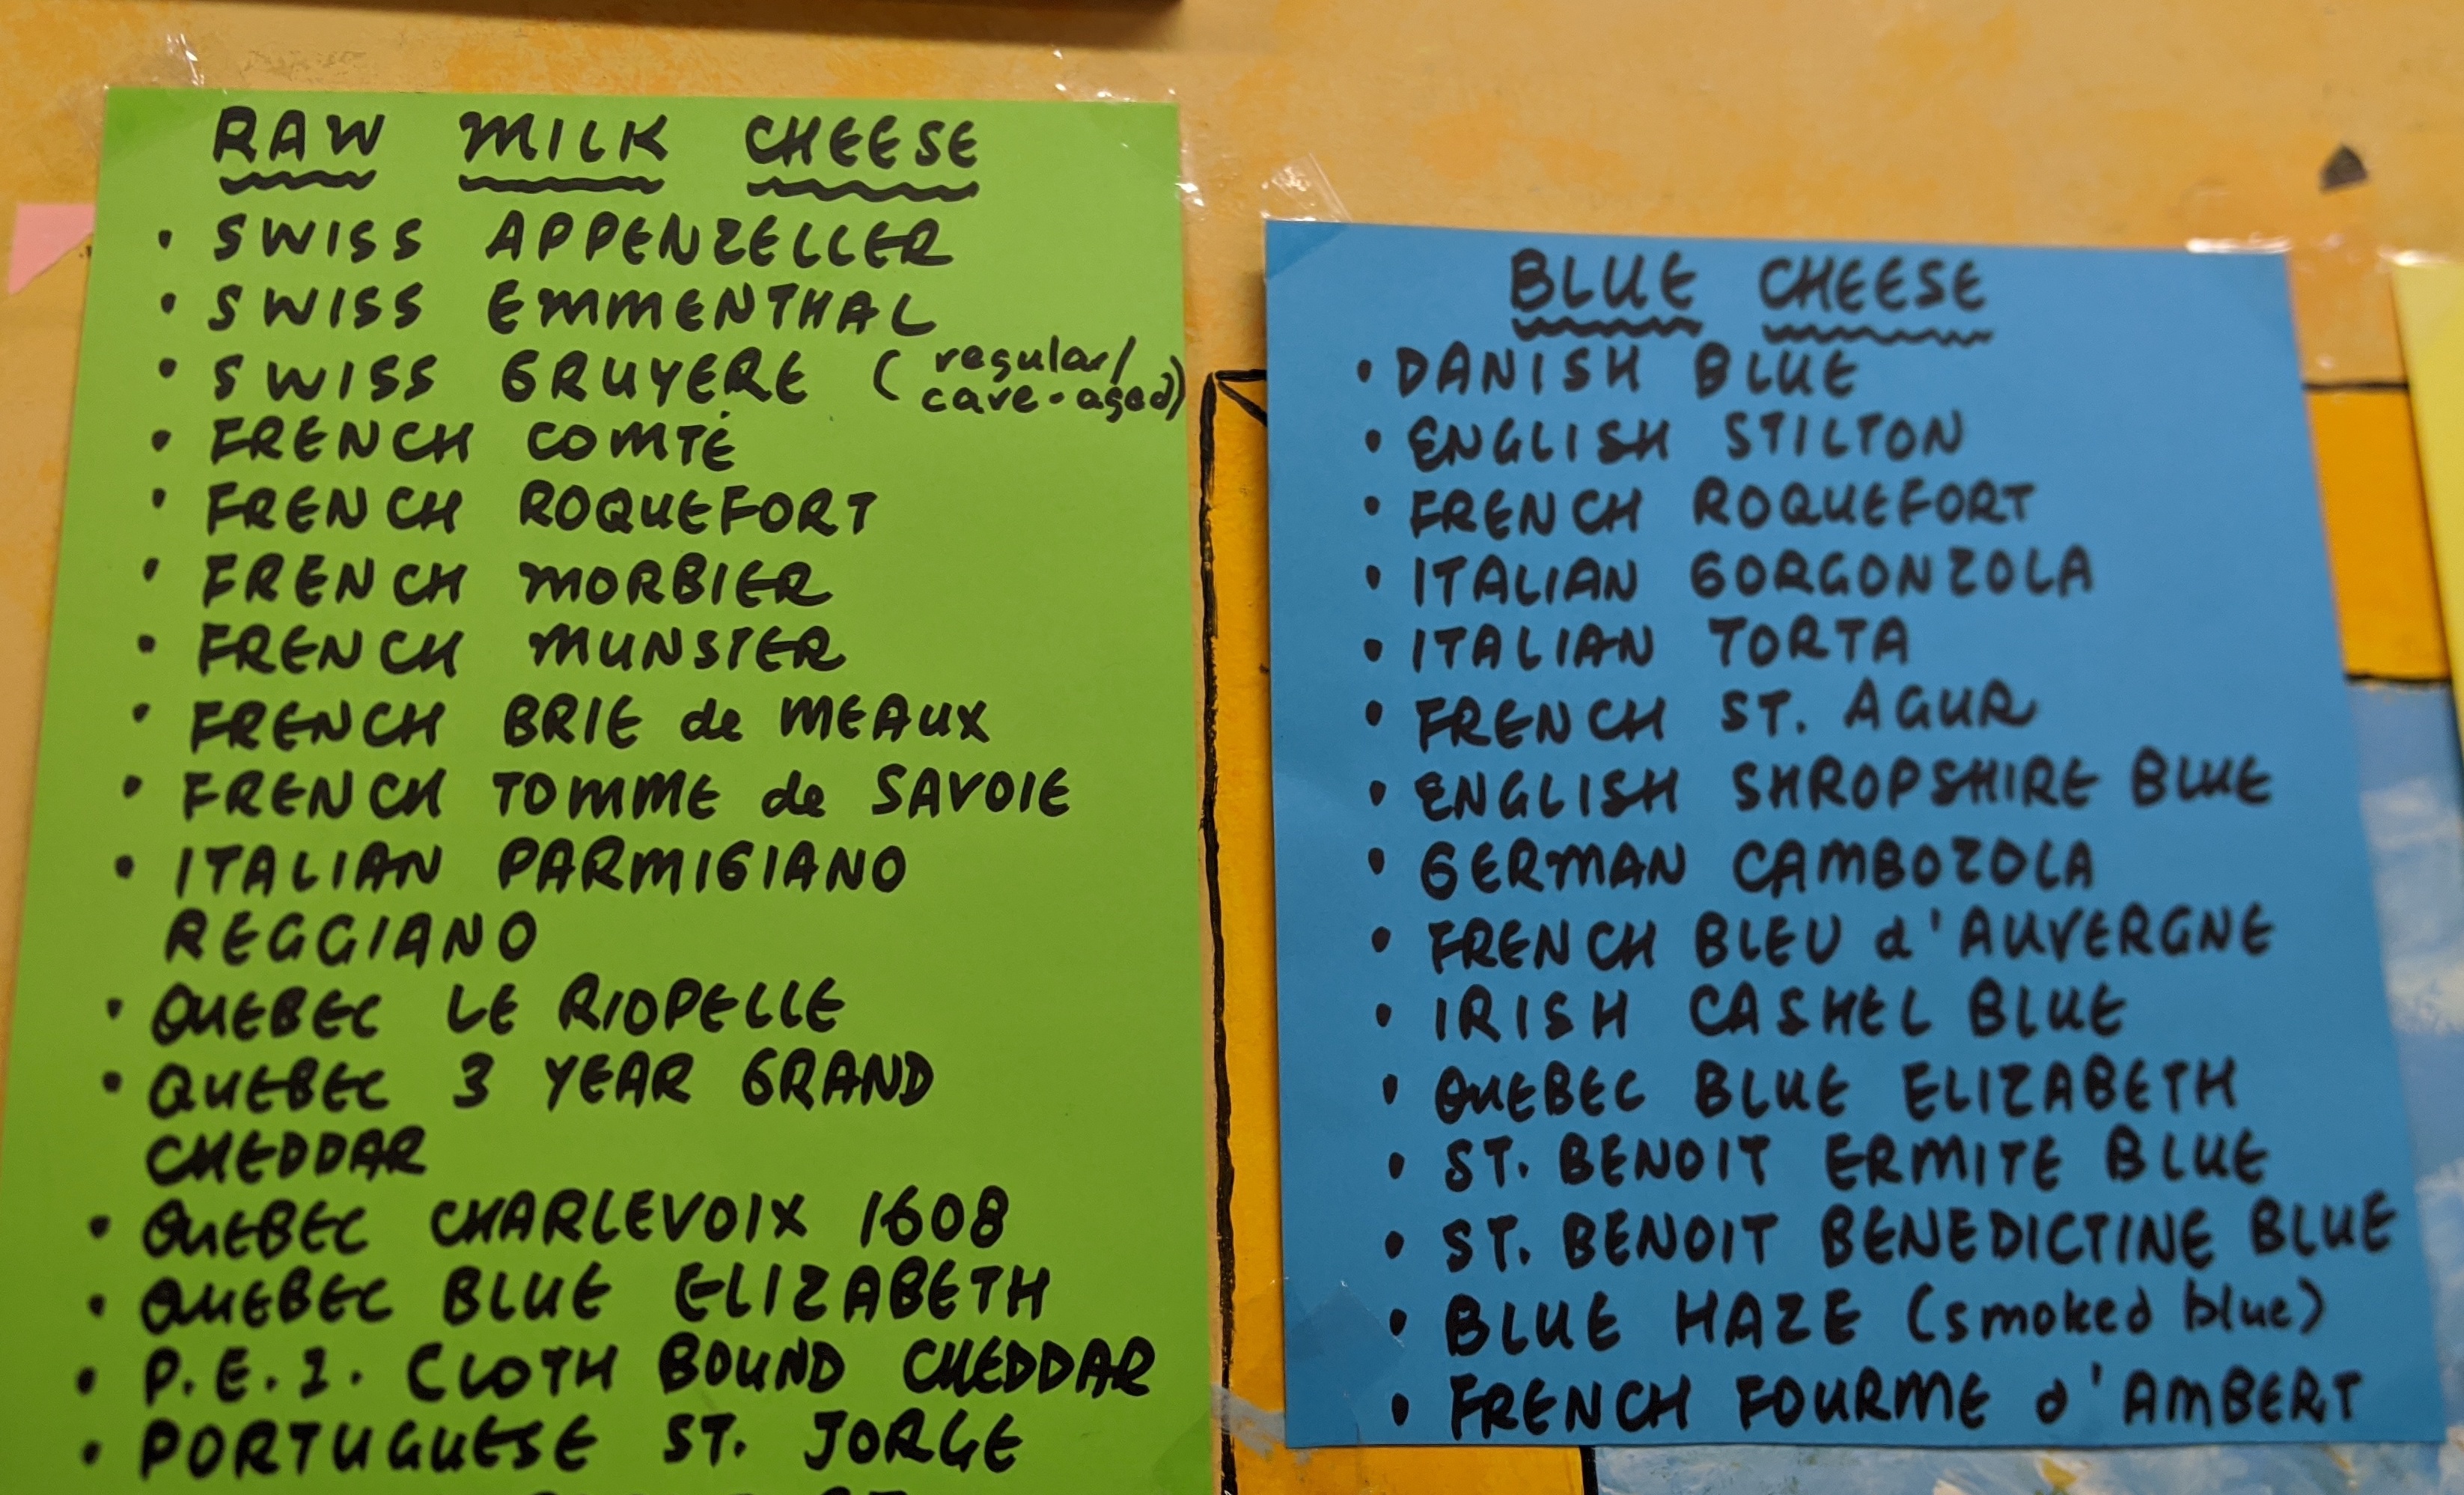 RAW MILK CHEESE
• SWISS APPENZELLER
• SWISS EMMENTHAL
• SWISS GRUYERE (regular/
cave-aged)
• FRENCH COMTÉ
• FRENCH ROQUEFORT
• FRENCH MORBIER
• FRENCH MUNSTER
• FRENCH BRIE de MEAUX
• FRENCH TOMME de SAVOIE
• ITALIAN PARMIGIANO
REGGIANO
• QUEBEC LE RIOPELLE
• QUEBEC 3 YEAR GRAND
CHEDDAR
• QUEBEC CHARLEVOIX 1608
• QUEBEC BLUE ELIZABETH
• P.E.I. CLOTH BOUND CHEDDAR
• PORTUGUESE ST. JORGE
BLUE CHEESE
• DANISH BLUE
• ENGLISH STILTON
• FRENCH ROQUEFORT
• ITALIAN GORGONZOLA
• ITALIAN TORTA
• FRENCH ST. AGUR
• ENGLISH SHROPSHIRE BLUE
• GERMAN CAMBOZOLA
• FRENCH BLEU d'AUVERGNE
• IRISH CASHEL BLUE
• QUEBEC BLUE ELIZABETH
• ST. BENOIT ERMITE BLUE
• ST. BENOIT BENEDICTINE BLUE
• BLUE HAZE (smoked blue)
• FRENCH FOURME d'AMBERT